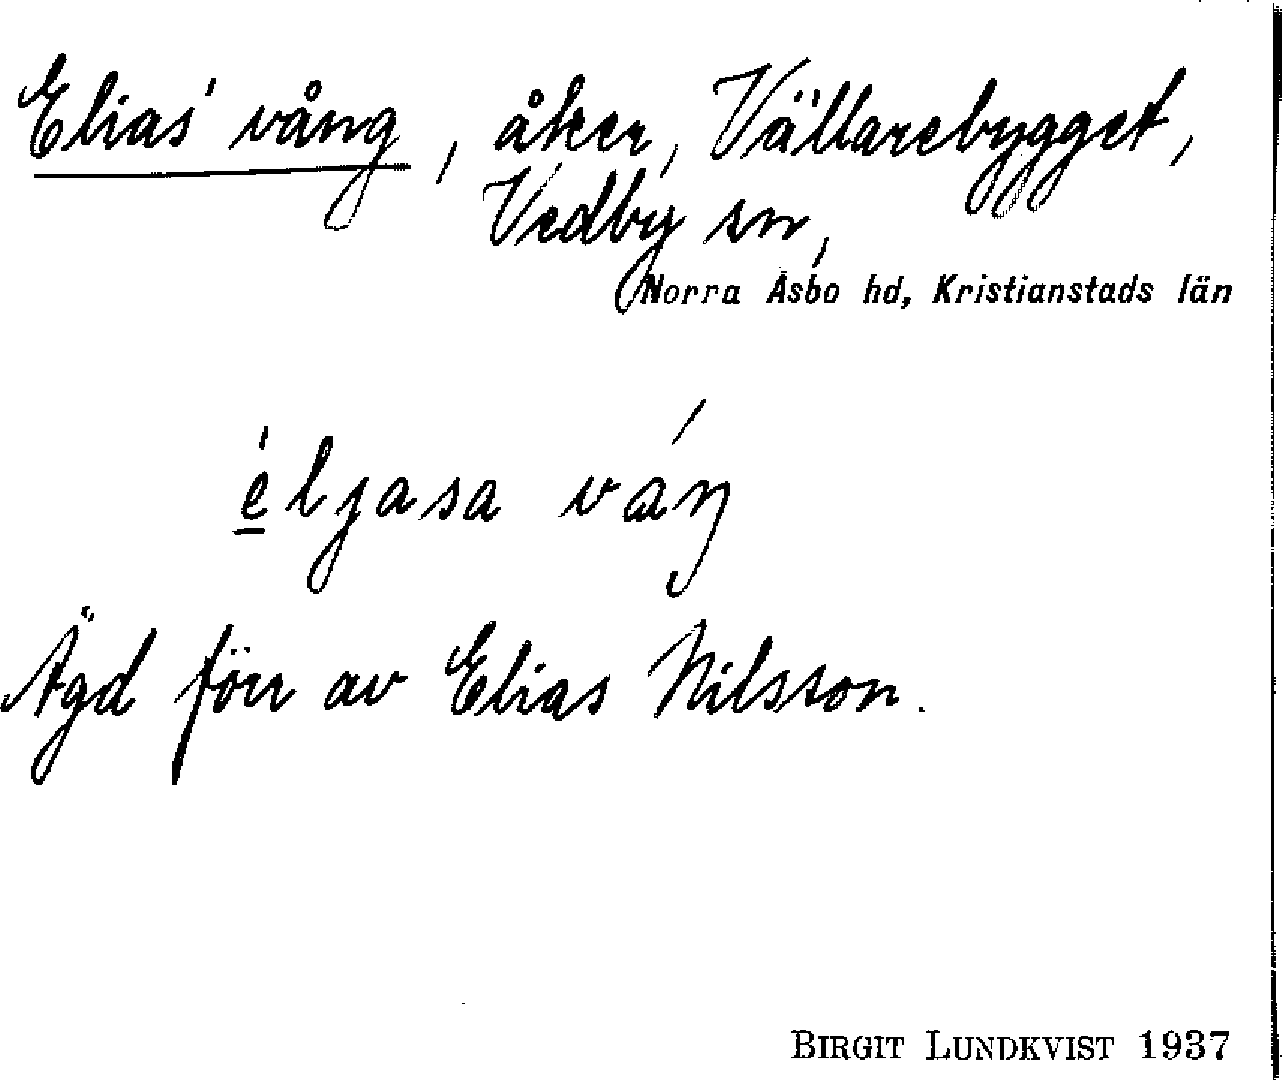 Elias' vång, åker, Vällarebygget,
Vedby sn,
Norra Åsbo hd, Kristianstads län
éljasa váŋ
Ägd förr av Elias Nilsson.
BIRGIT LUNDKVIST 1937